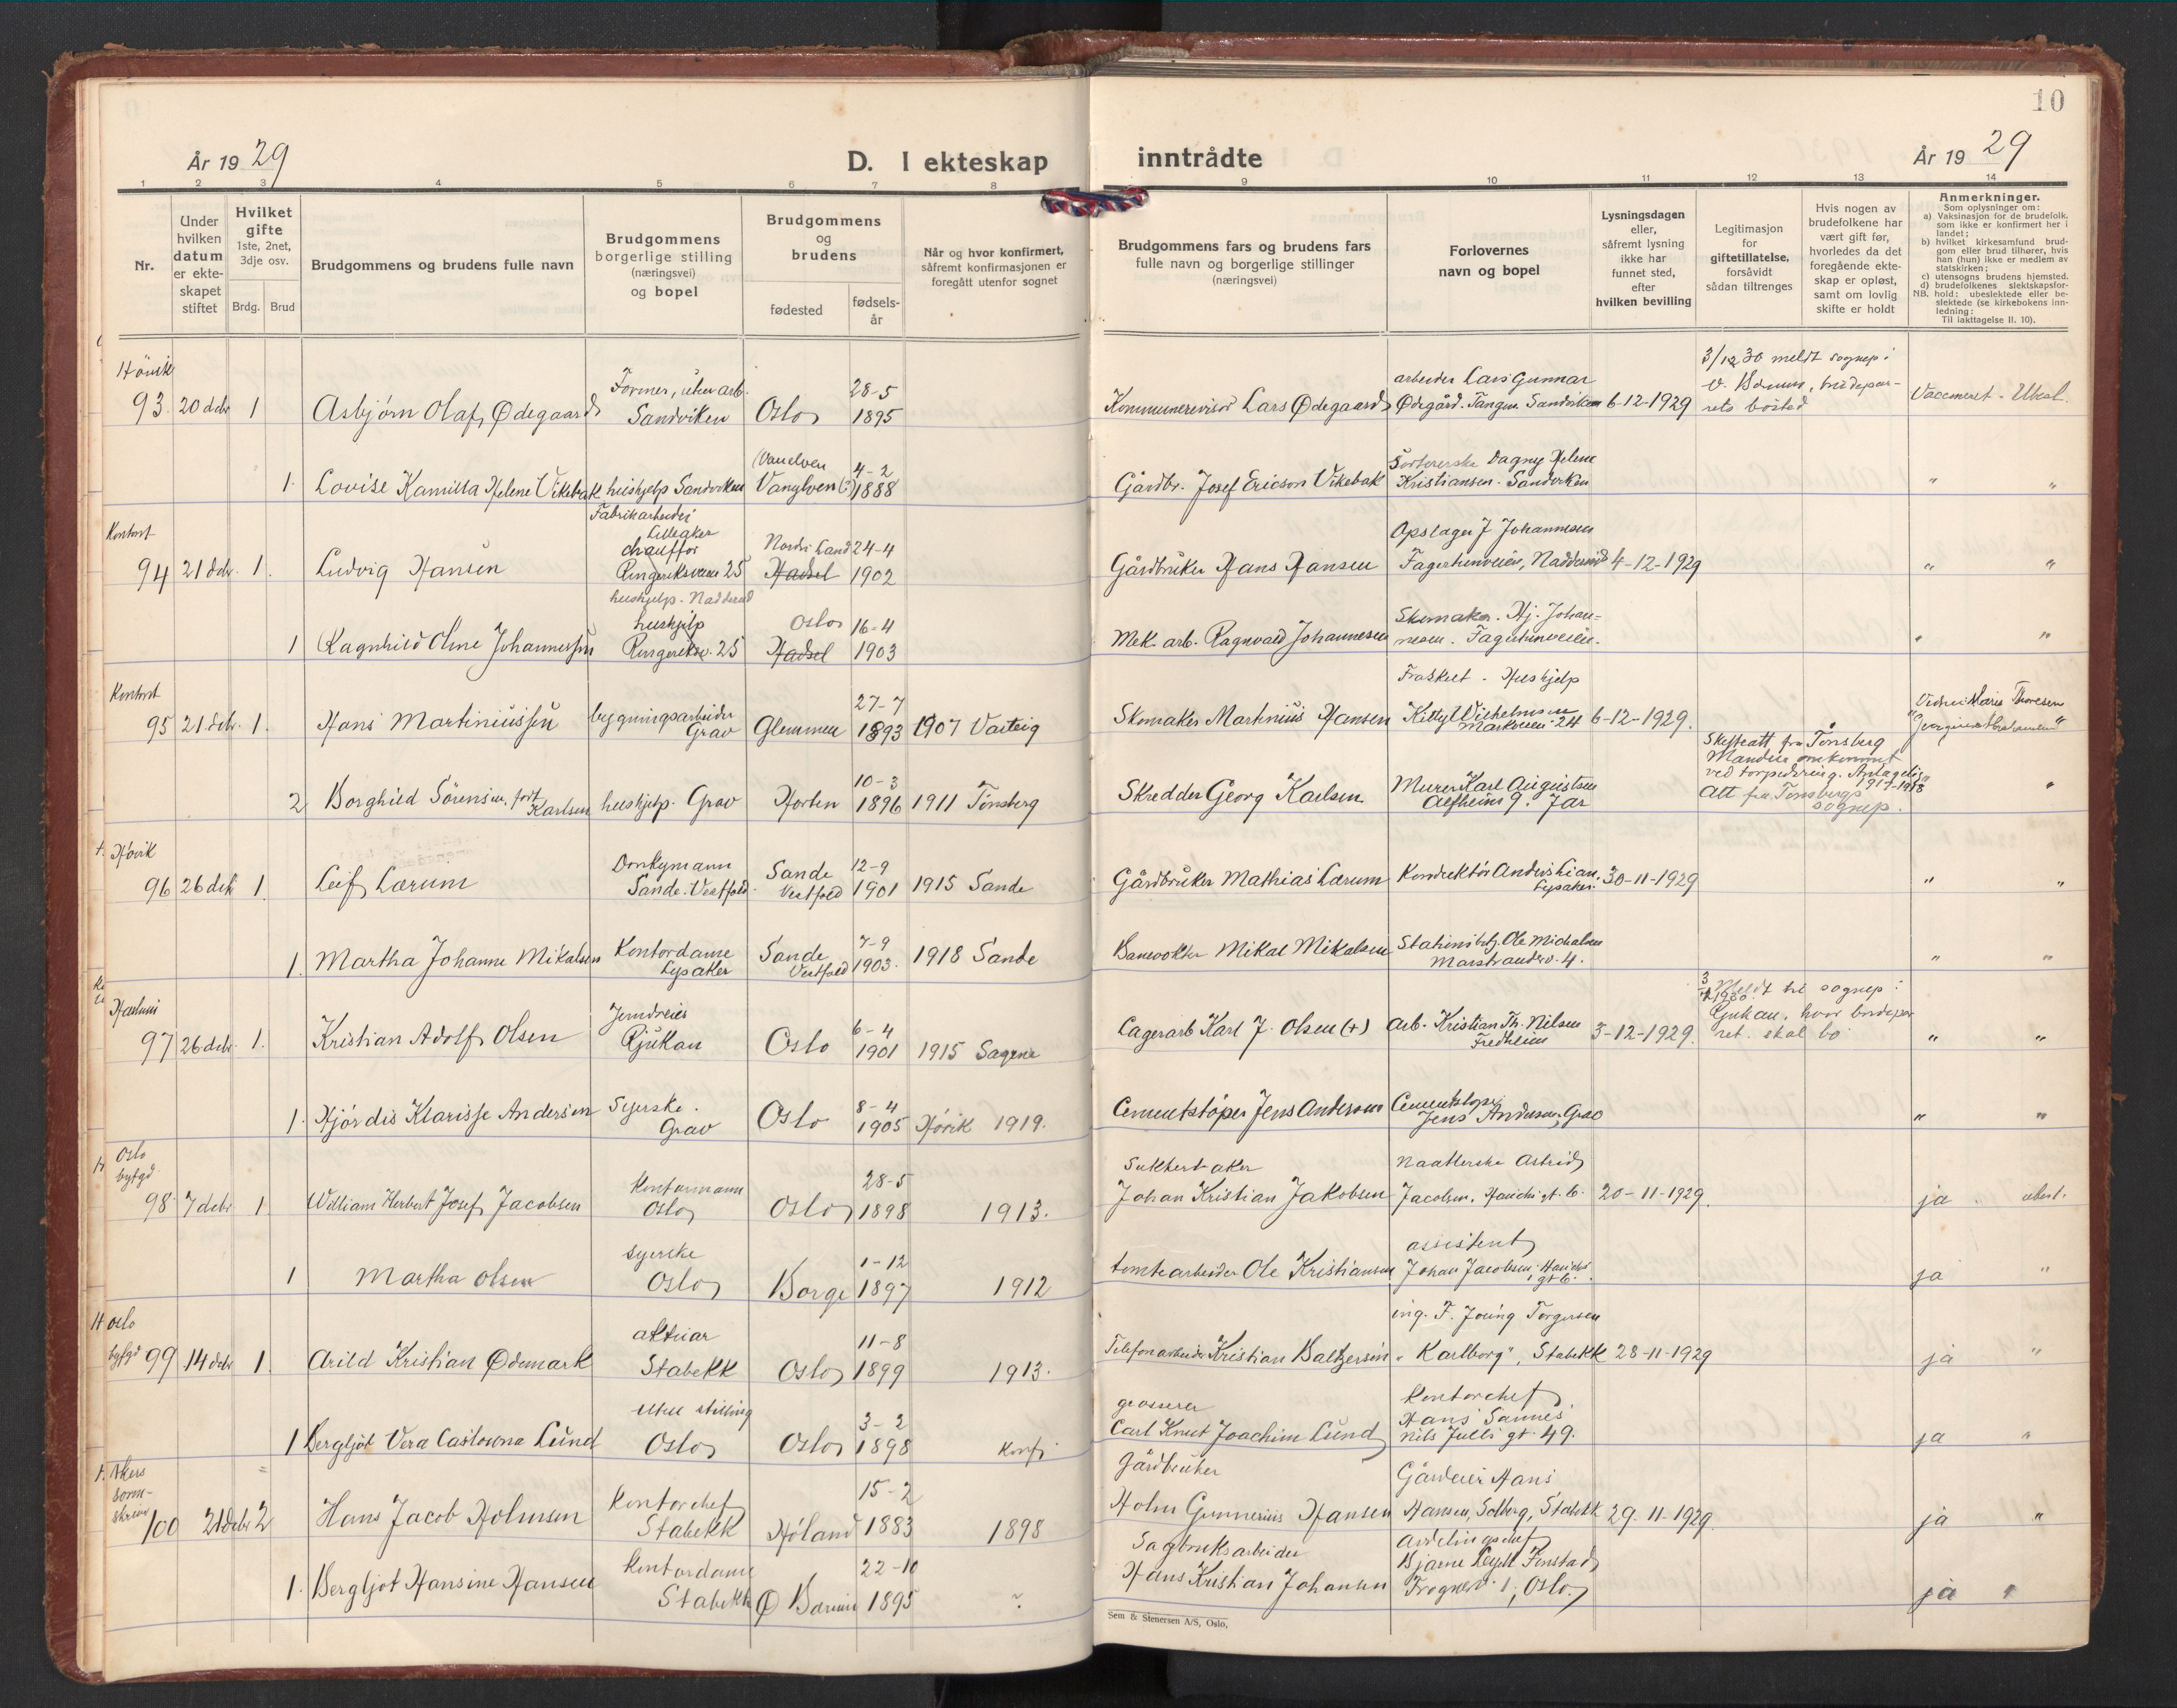 10
År 19 29
D. I ekteskap
inntrådte
År 19 29
1 2 3 4 5 6 7 8 9 10 11 12 13 14
Nr.
Under hvilken datum er ekteskapet stiftet
Hvilket gifte
1ste, 2net, 3dje osv.
Brdg.
Brud
Brudgommens og brudens fulle navn
Brudgommens borgerlige stilling (næringsvei) og bopel
Brudgommens og brudens
fødested
fødsels-år
Når og hvor konfirmert, såfremt konfirmasjonen er foregått utenfor sognet
Brudgommens fars og brudens fars fulle navn og borgerlige stillinger (næringsvei)
Forlovernes navn og bopel
Lysningsdagen eller, såfremt lysning ikke har funnet sted, efter hvilken bevilling
Legitimasjon for giftetillatelse, forsåvidt sådan tiltrenges
Hvis nogen av brudefolkene har vært gift før, hvorledes da det foregående ekteskap er opløst, samt om lovlig skifte er holdt
Anmerkninger.
Som oplysninger om:
a) Vaksinasjon for de brudefolk, som ikke er konfirmert her i landet;
b) hvilket kirkesamfund brudgom eller brud tilhører, hvis han (hun) ikke er medlem av statskirken;
c) utensogns brudens hjemsted.
d) brudefolkenes slektskapsforhold: ubeslektede eller beslektede (se kirkebokens innledning:
NB. Til iakttagelse II. 10).
Høvik
93. 20 debr 1 Asbjørn Olaf Ødegaard
Former, uten arb. Sandviken
Oslo
28-5 1895
Kommunerevisor Lars Ødegaard
arbeider Lars Gunnar Ødegård. Tangen. Sandviken
6-12-1929
3/12 30 meldt sognep. i V. Bærum, brudeparrets bosted
Vaccineret - Ubesl.
1. Lovise Kamilla Helene Vikebak
hushjelp Sandviken
(Vanelven Vanylven
4-2 1888
Gårdbr. Josef Ericson Vikebak
Sortererske Dagny Helene Kristiansen. Sandviken
" "
Kontort
94 21 debr. 1. Ludvig Hansen
Fabrikarbeider Lilleaker
chauffør
Ringeriksveien 25
Nordre Land
Hadsel
24-4 1902
Gårdbruker Hans Hansen
Opslager J Johannesen Fagertunveien, Nadderud
4-12-1929
" "
1 Ragnhild Oline Johannessen
hushjelp - Nadderud
hushjelp
Ringeriksv. 25
Oslo
Hadsel
16-4 1903
Mek. arb. Ragnvald Johannesen
Skomaker. Hj. Johannesen. Fagertunveien.
" "
Kontort
95 21. debr. 1. Hans Martiniussen
bygningsarbeider Grav
Glemmen
27-7 1893
1907 Varteig
Skomaker Martinius Hansen
Fraskilt - Hushjelp Kitty Wilhelmsen Markveien 24
6-12-1929.
2 Borghild Sørensen, født Karlsen
hushjelp. Grav
Horten
10-3 1896
1911 Tønsberg
Skredder Georg Karlsen
Murer Karl Augustsen Alfheim 9. Jar
Skifteatt. fra Tønsberg
Manden omkommet ved torpedering. Antagelig 1917-1918
Att fra Tønsbergs sognep.
"
Høvik
96 26 deb 1 Leif Lærum
Donkymann Sande. Vestfold.
Sande Vestfold
12-9 1901
1915 Sande
Gårdbruker Mathias Lærum
Konduktør Anders Lian. Lysaker.
30-11-1929
" "
1. Martha Johanne Mikalsen
Kontordame Lysaker
Sande Vestfold
7-9 1903.
1918 Sande
Banevokter Mikal Mikalsen
Stationsbetj. Ole Michalsen Marstrandsv. 4.
" "
Haslum
97 26 debr. 1. Kristian Adolf Olsen
Jerndreier Rjukan
Oslo
6-4 1901
1915 Sagene
Lagerarb Karl J. Olsen (+)
Arb. Kristian Th. Nilsen Fredheim
3-12-1929.
Meldt til sognep. i Rjukan, hvor brudeparret skal bo
" "
1. Hjørdis Klarisse Andersen
Syerske. Grav
Oslo
8-4 1905
Høvik 1919.
Cementstøper Jens Andersen
Cementstøper Jens Andersen, Grav
" "
Oslo byfgd
98. 7 debr 1 William Herbert Josef Jacobsen
Kontormann Oslo
Oslo
28-5 1898
1913.
Sukkerbaker Johan Kristian Jakobsen
Naatlerske Astrid Jacobsen. Hauchs gt. 6.
20-11-1929.
ja ubesl.
1 Martha Olsen
syerske Oslo
Borge
1-12 1897
1912
tomtearbeider Ole Kristiansen
assistent Johan Jacobsen. Hauchs gt 6.
ja "
Oslo byfgd
99 14 debr 1. Arild Kristian Ødemark
aktuar Stabekk
Oslo
11-8 1899
1913.
Telefonarbeider Kristian Baltzersen
ing. F. Joúng Torgersen "Karlborg", Stabekk
28-11-1929
ja "
1 Bergljot Vera Lund
uten stilling Oslo
Oslo
3-2 1898
konf.
grosserer Carl Knut Joachim Lund
kontorchef Hans Sannes Nils Juels gt. 49.
ja "
Akers sorenskriver
100 21 debr 2 Hans Jacob Holmsen
Kontorchef Stabekk
Høland
15-2 1883
1898
Gårdbruker Holm Gunnerius Hansen
Gårdeier Hans Hansen, Solberg, Stabekk
29-11-1929.
ja "
1. Bergljot Hansine Hansen
Kontordame Stabekk
Ø Bærum
22-10 1895
?
Sagbruksarbeider Hans Kristian Johansen
avdelingschef Bjarne Finstad Frognerv. 1, Oslo
ja "
Sem & Stenersen A/S, Oslo.